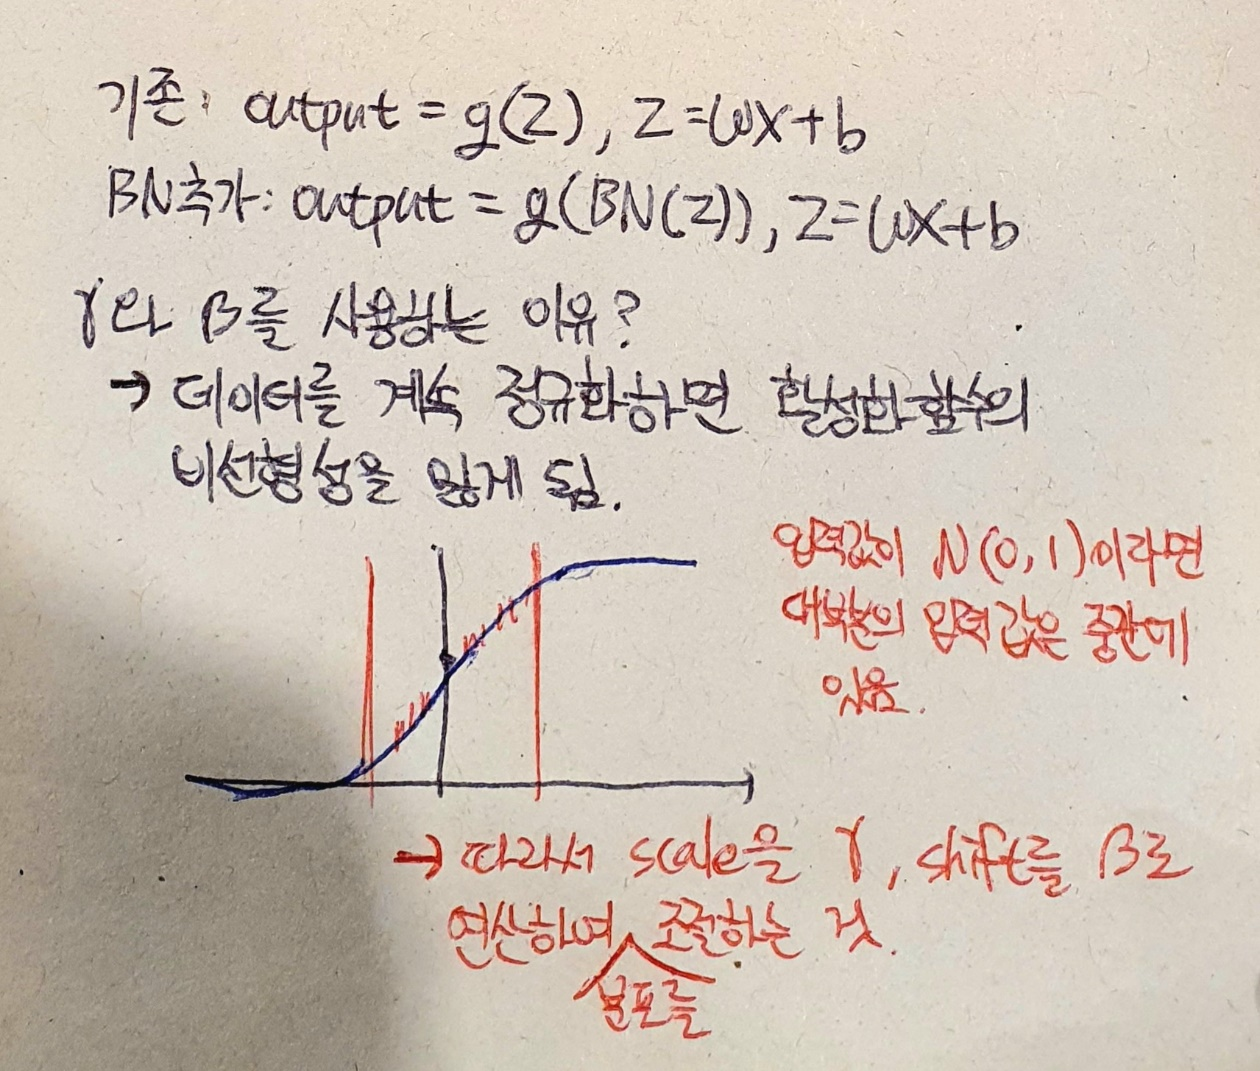 기존: output = g(Z), Z=wx+b
BN추가: output = g(BN(Z)), Z=wx+b
γ와 β를 사용하는 이유?
→ 데이터를 계속 정규화하면 활성화함수의
비선형성을 잃게 됨.
입력값이 N(0,1)이라면
대부분의 입력값은 중간에
있음.
→ 따라서 scale을 γ, shift를 β로
연산하여 분포를 조절하는 것.